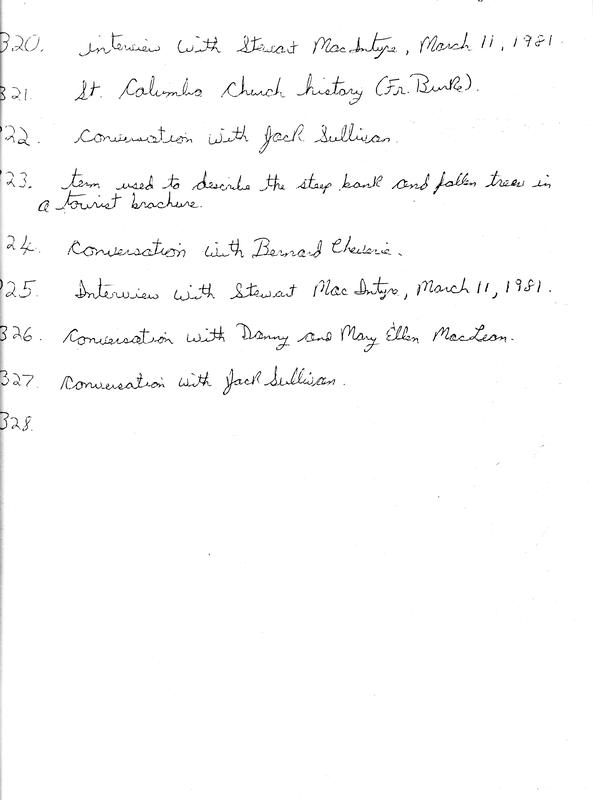 320. interview with Stewart MacIntyre, March 11, 1981.
321. St. Columba Church history (Fr. Burke).
322. Conversation with Jack Sullivan.
323. term used to describe the steep bank and fallen trees in
a tourist brochure.
324. Conversation with Bernard Cheverie.
325. Interview with Stewart MacIntyre, March 11, 1981.
326. Conversation with Danny and Mary Ellen MacLean.
327. Conversation with Jack Sullivan.
328.